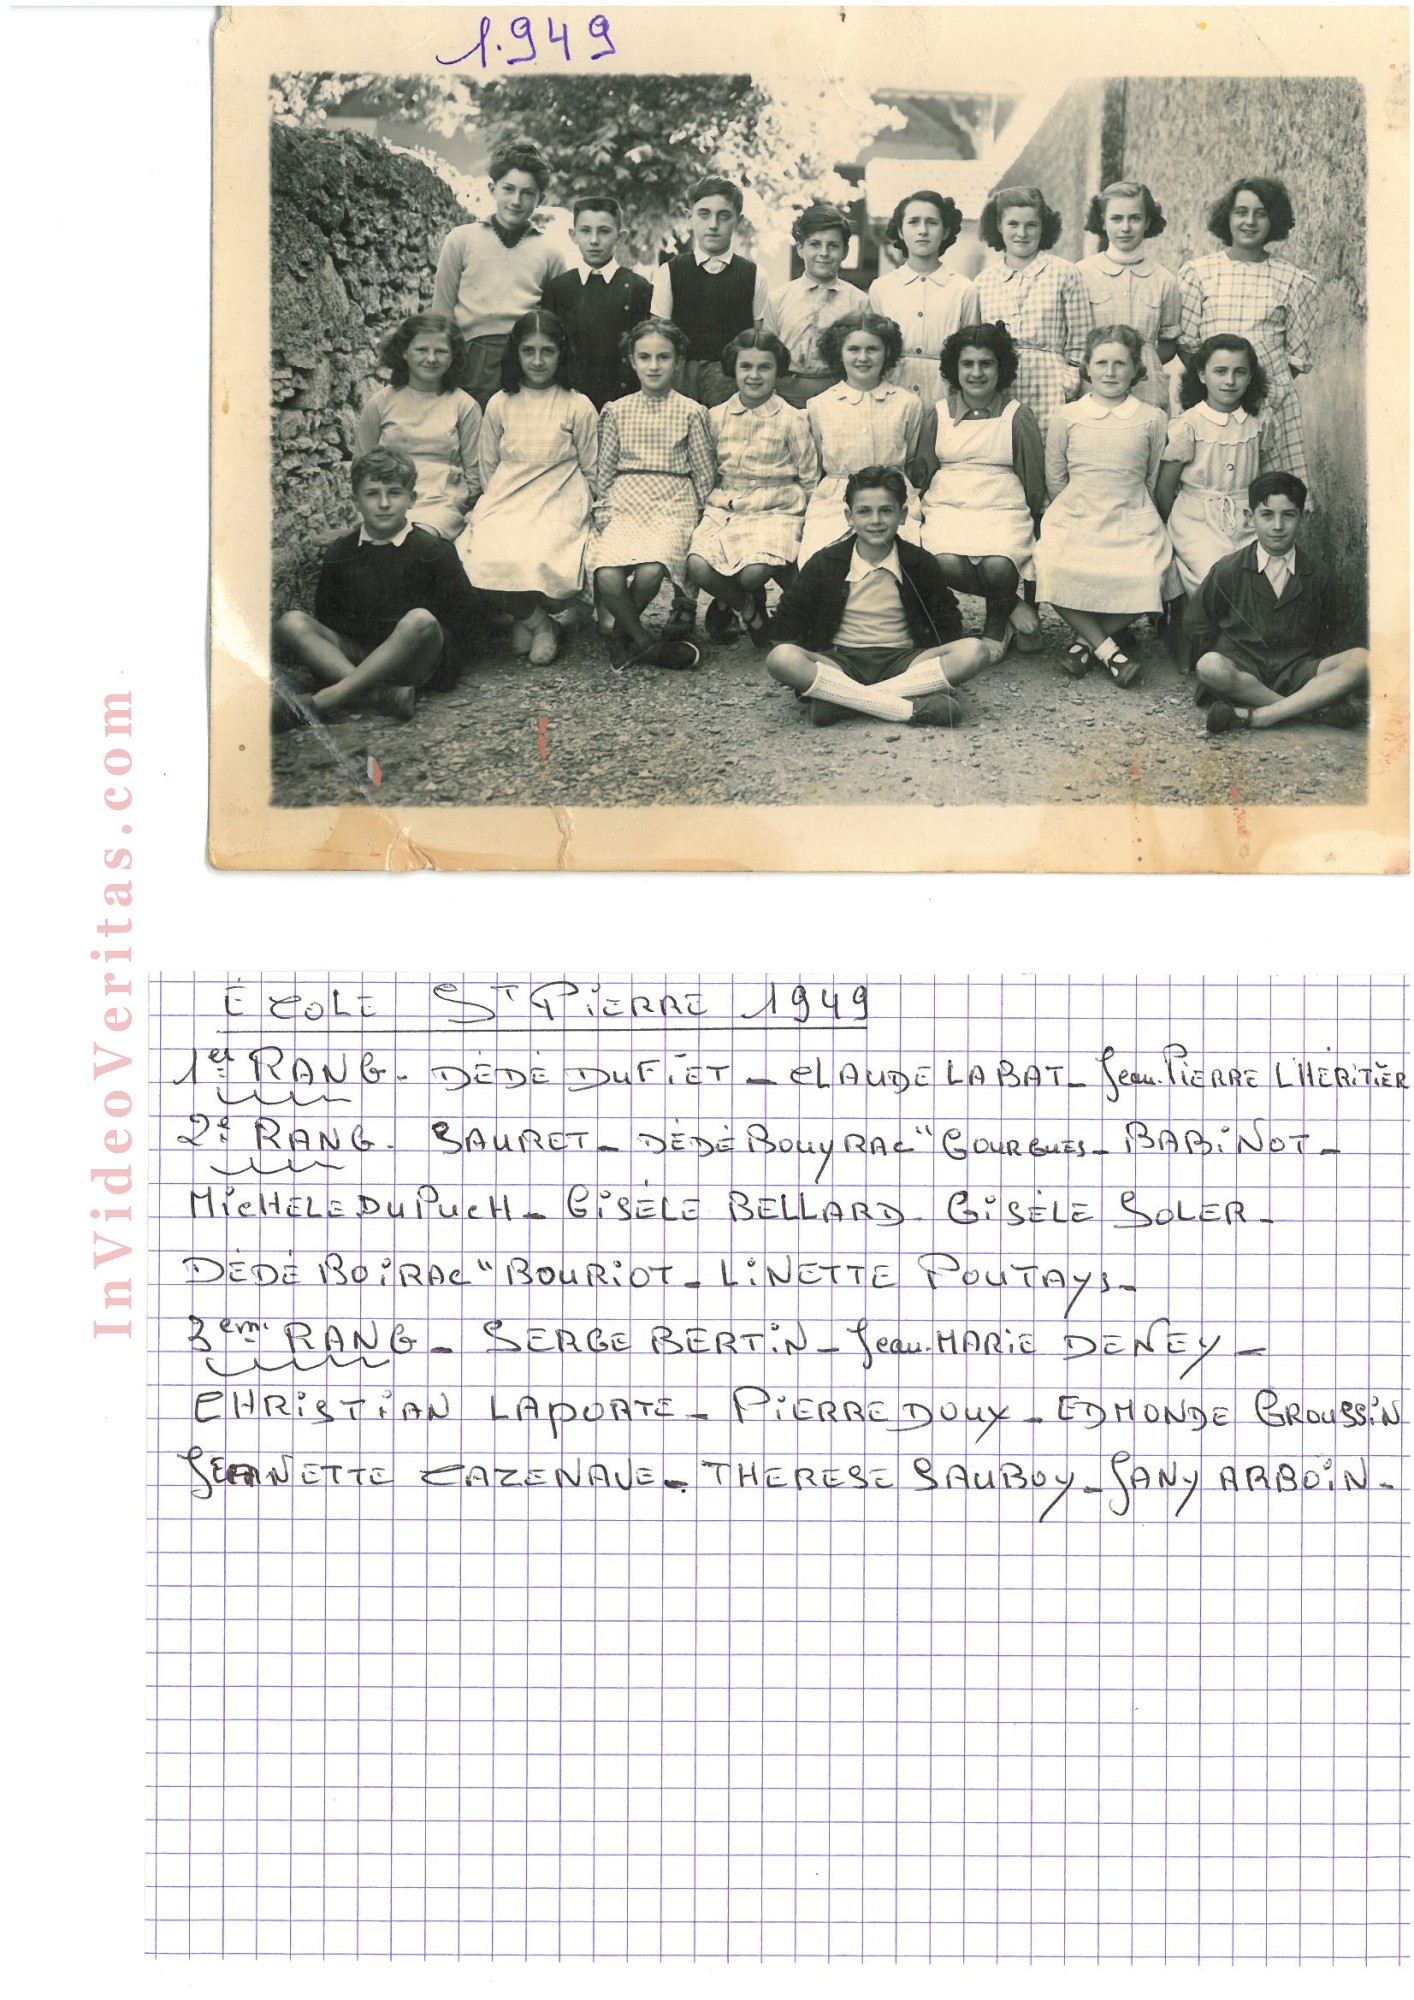 1.949
ÉCOLE ST PIERRE 1949
1er RANG - DÉDÉ DUFIET - CLAUDE LABAT - Jean-PIERRE L'HÉRITIER
2e RANG - SAURET - DÉDÉ BOUYRAC " GOURGUES - BABINOT -
MICHÈLE DUPUCH - GISÈLE BELLARD - GISÈLE SOLER -
DÉDÉ BOIRAC " BOURIOT - LINETTE POUTAYS -
3em RANG - SERGE BERTIN - Jean-MARIE DENEY -
CHRISTIAN LAPORTE - PIERRE DOUX - EDMONDE GROUSSIN
JEANNETTE CAZENAVE - THERESE SAUBOY - JANY ARBOIN -
InVideoVeritas.com